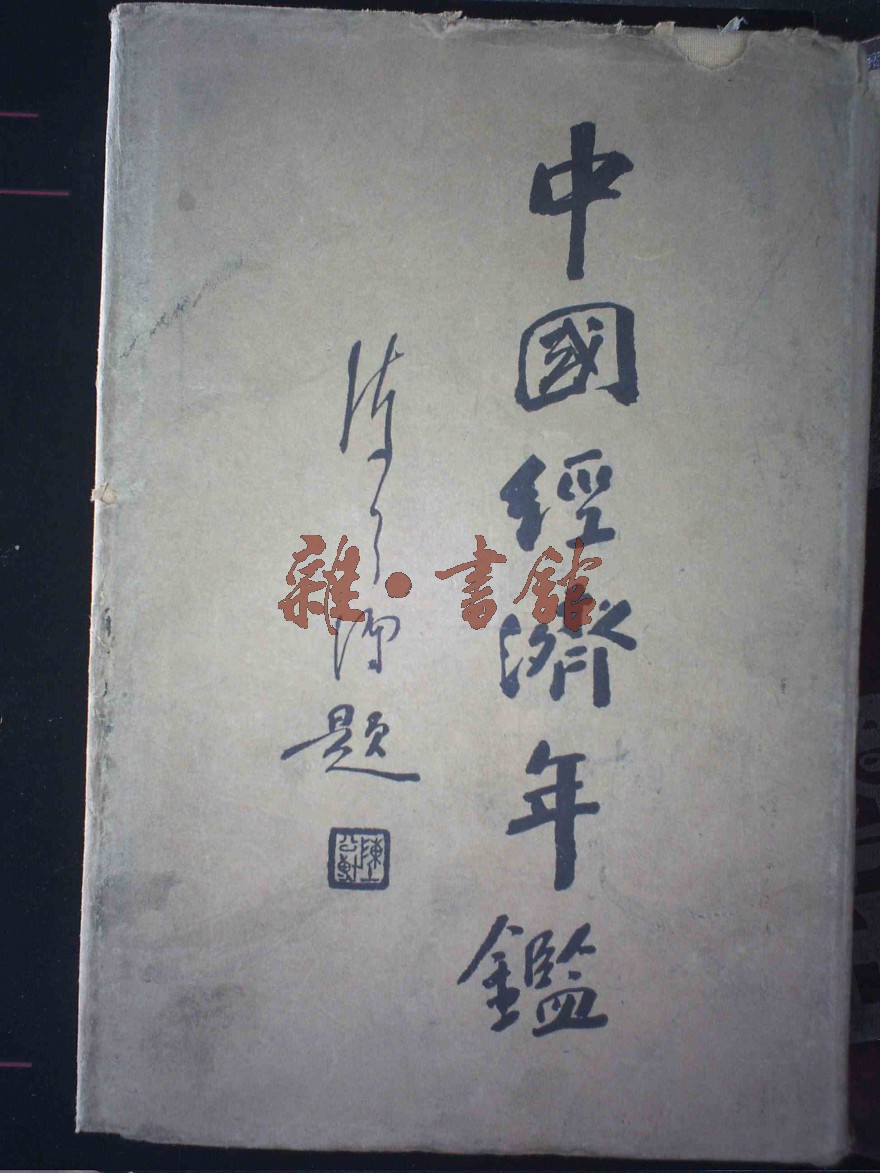 中國經濟年鑑
陳公博題
雜·書館